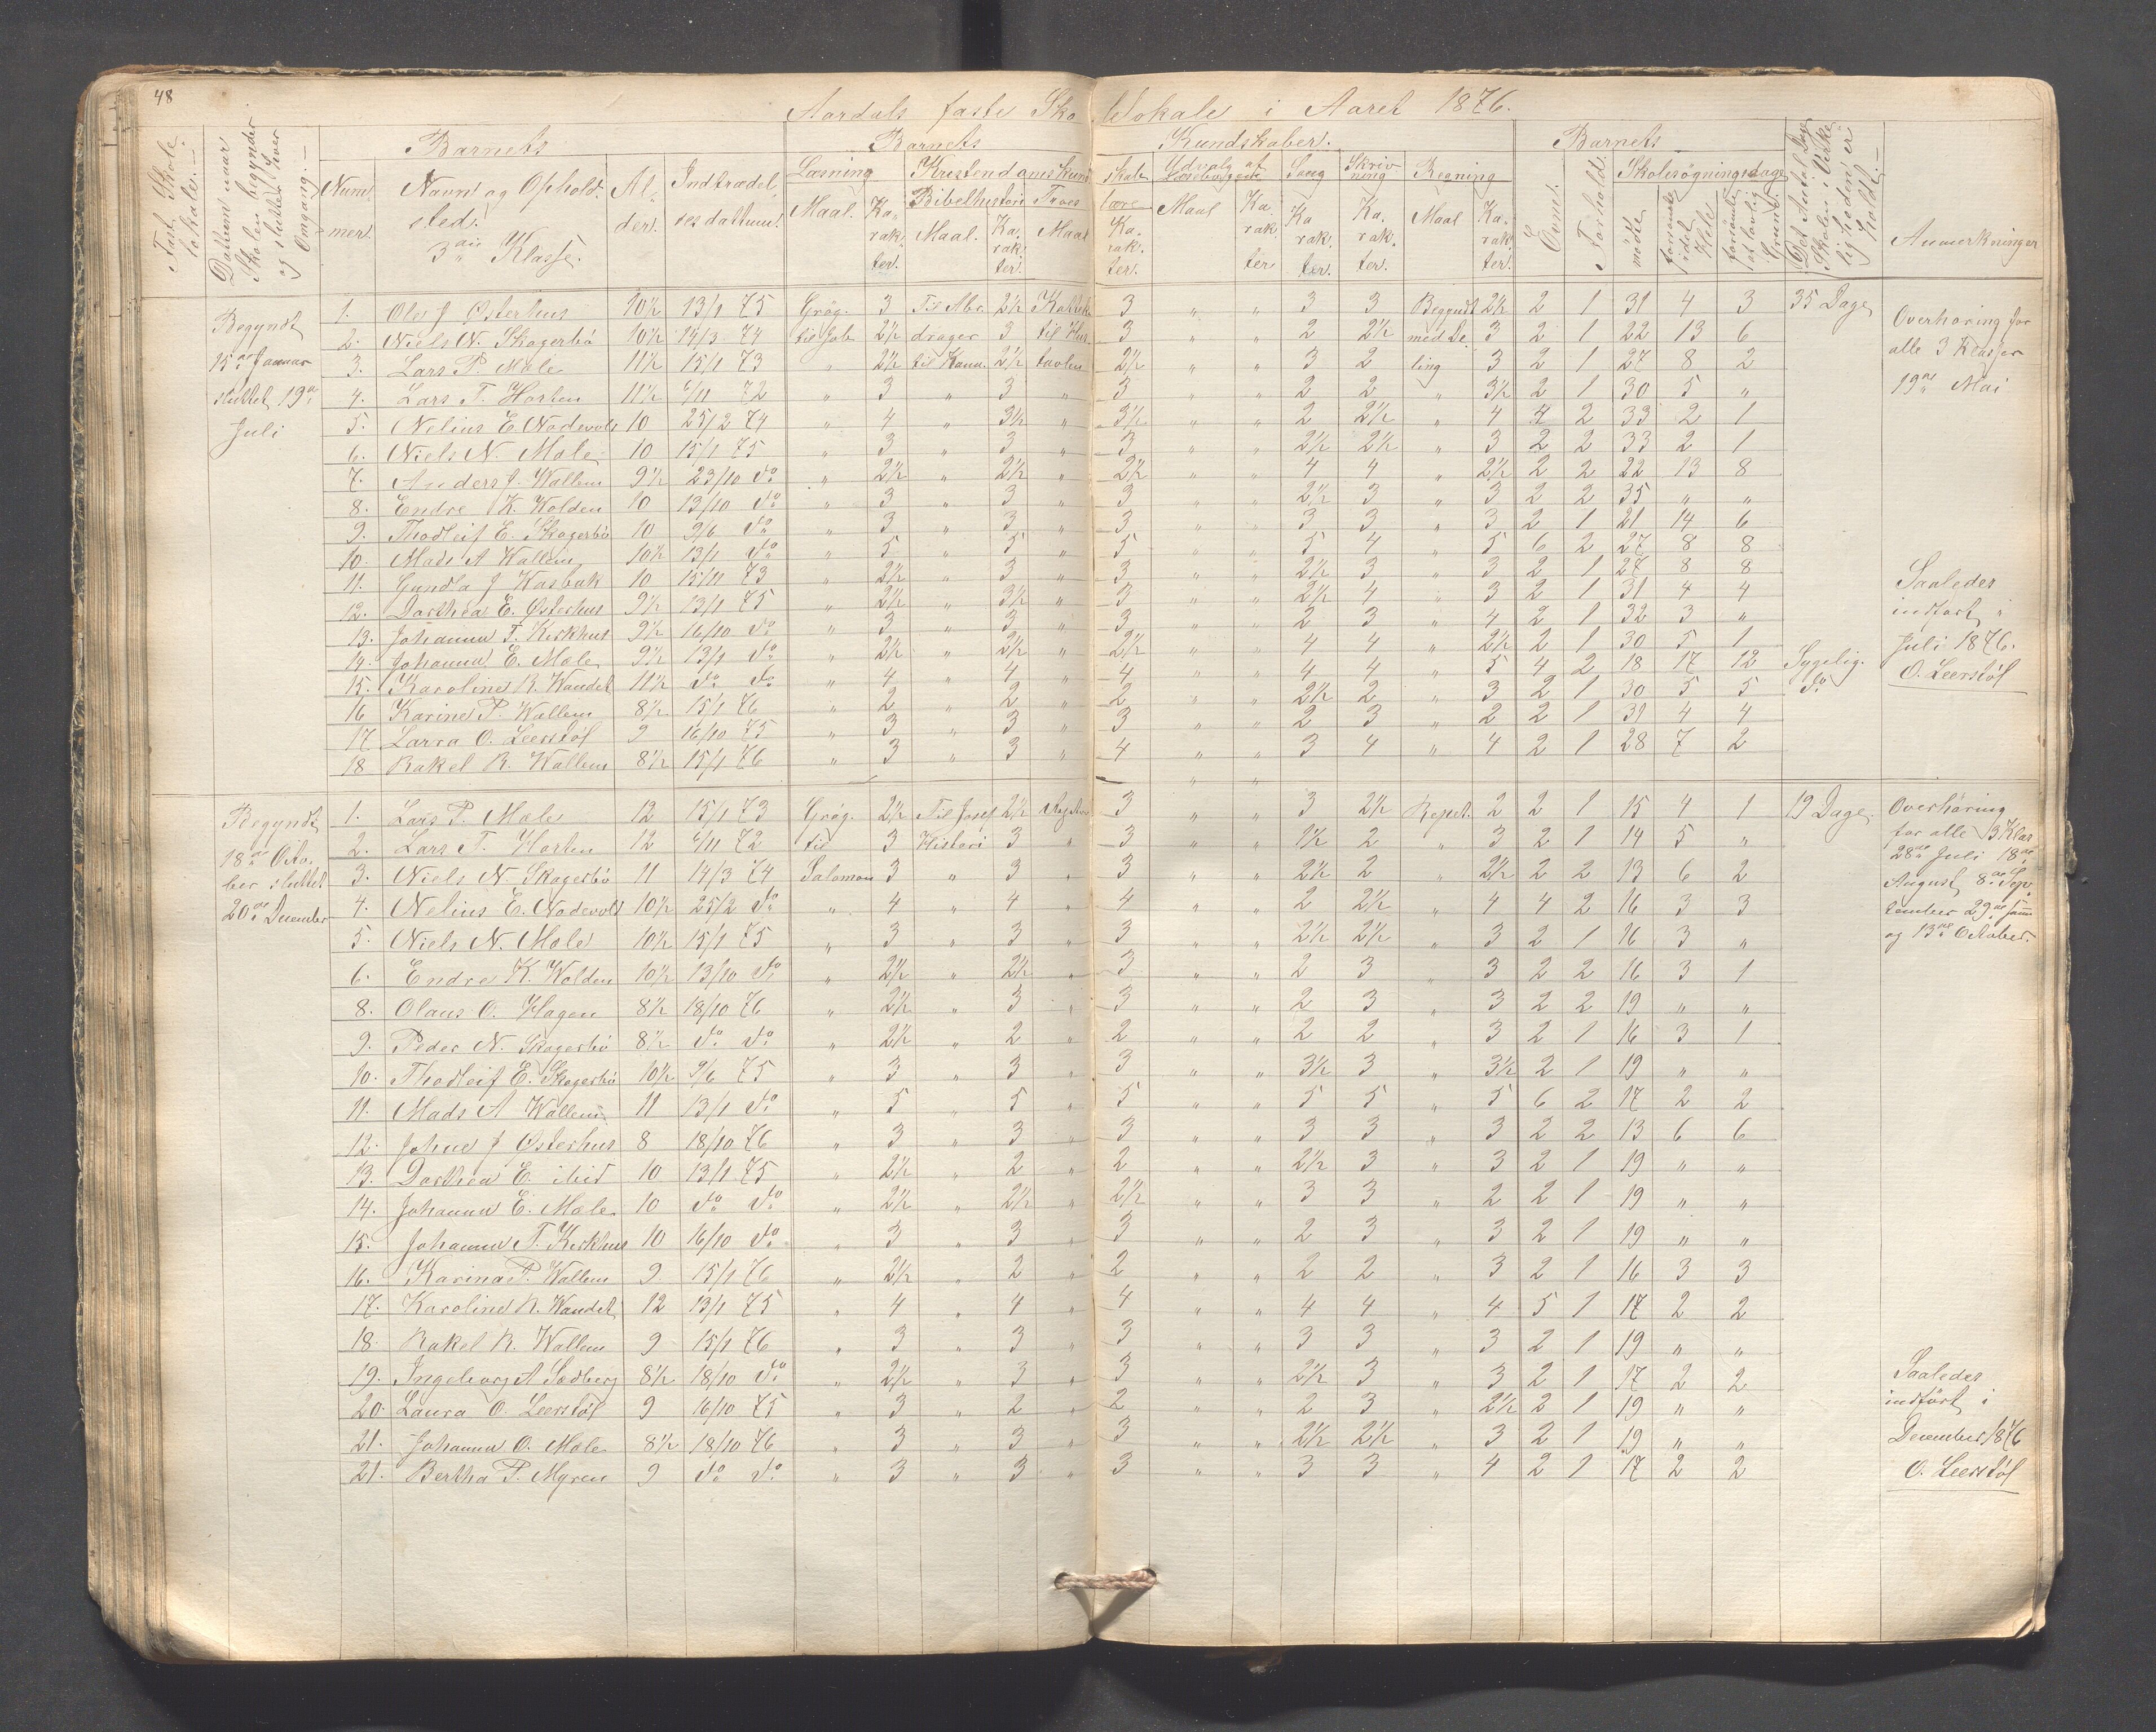 48
Aardals faste Skolelokale i Aaret 1876.
Fast Skole lokale.
Datum naar Skolen begynder og slutter hver Omgang.
Barnets
Nummer
Navn og Opholdsted.
3die Klasse.
Alder.
Indtrædelsesdathum.
Barnets Kundskaber.
Læsning
Maal.
Karakter.
Kristendomskundskab
Bibelhistorie
Maal.
Karakter.
Troeslære
Maal
Karakter.
Udvalg af Læsebogen
Maal
Karakter
Sang
Karakter.
Skrivning
Karakter.
Regning
Maal
Karakter.
Barnets
Evne.
Forhold.
Skolesøgningsdage
mødte
forsømte i det Hele
forsømte af lovlig Grund
Det Antal Dage Skolen i Virkeligheden er holdt.
Anmerkninger
Begyndt 15de Januar sluttet 19de Juli
1. Ole J Østerhus 10½ 13/1 75 Grøg. 3 Til Abra 2½ 3 " " 3 3 Begyndt 2½ 2 1 31 4 3 35 Dage
2. Niels N. Skogerbö 10½ 14/3 74 til Job 2½ drager 3 til Hus 3 " " 2 2½ med De 3 2 1 22 13 6
3. Lars P. Mæle 11½ 15/1 73 " 2½ til Kana. 2½ tavlen 2½ " " 3 2 ling 3 2 1 27 8 2
4. Lars T. Horten 11½ 6/11 72 " 3 " 3 " 3 " " 2 2 " 3½ 2 1 30 5 "
5. Nelius E. Nodevold 10 25/2 74 " 4 " 3½ " 3½ " " 2 2½ " 4 4 2 33 2 1
6. Niels N. Mæle 10 15/1 75 " 3 " 3 " 3 " " 2½ 2½ " 3 2 2 33 2 1
7. Anders J. Wallem 9½ 23/10 do " 2½ " 2½ " 2½ " " 4 4 " 2½ 2 2 22 13 8
8. Endre K. Wolden 10 13/10 do " 3 " 3 " 3 " " 2½ 3 " 3 2 2 35 " "
9. Thodleif E. Skogerbö 10 9/6 do " 3 " 3 " 3 " " 3 3 " 3 2 1 21 14 6
10. Mads A Wallem 10½ 13/1 do " 5 " 5 " 5 " " 5 4 " 5 6 2 27 8 8
11. Gundla J Kasbak 10 15/11 73 " 2½ " 3 " 3 " " 2½ 3 " 3 2 1 27 8 8
12. Dorthea E. Østerhus 9½ 13/1 75 " 2½ " 3½ " 3 " " 2½ 4 " 3 2 1 31 4 4
13. Johanna T. Kirkhus 9½ 16/10 do " 3 " 3 " 3 " " 2 3 " 4 2 1 32 3 "
14. Johanna E. Mæle 9½ 13/1 do " 2½ " 2½ " 2½ " " 4 4 " 2½ 2 1 30 5 1
15. Karoline R. Waudet 11½ do do " 4 " 4 " 4 " " 4 4 " 5 4 2 18 17 12 Sygelig.
16 Karine P. Wallem 8½ 15/1 76 " 2 " 2 " 2 " " 2½ 2 " 3 2 1 30 5 5 do
17 Larra O. Leerstöl 9 16/10 75 " 3 " 3 " 3 " " 2 3 " 2 2 1 31 4 4
18 Rakel R. Wallem 8½ 15/1 76 " 3 " 3 " 4 " " 3 4 " 4 2 1 28 7 2
Overhøring for
alle 3 Klasser
19de Mai
Saaledes
indfört i
Juli 1876.
O. Leerstöl
Begyndt 18de October sluttet 20de December
1. Lars P. Mæle 12 15/1 73 Grøg. 2½ Til Josef 2½ 3 " " 3 2½ Repet. 2 2 1 15 4 1 19 Dage.
2. Lars T. Horten 12 6/11 72 til 3 Histori 3 " 3 " " 1½ 2 " 3 2 1 14 5 "
3. Niels N. Skogerbö 11 14/3 74 Salomon 3 " 3 " 3 " " 2½ 2 " 2½ 2 2 13 6 2
4. Nelius E. Nodevold 10½ 25/2 do " 4 " 4 " 4 " " 2 2½ " 4 4 2 16 3 3
5. Niels N. Mæle 10½ 15/1 75 " 3 " 3 " 3 " " 2½ 2½ " 3 2 1 16 3 "
6. Endre K. Wolden 10½ 13/10 do " 2½ " 2½ " 3 " " 2 3 " 3 2 2 16 3 1
8. Olaus O. Hagen 8½ 18/10 76 " 2½ " 3 " 3 " " 2 3 " 3 2 2 19 " "
9. Peder N. Skogerbö 8½ do do " 2½ " 2 " 2 " " 2 2 " 3 2 1 16 3 1
10. Thodleif E. Skogerbö 10½ 9/6 75 " 3 " 3 " 3 " " 3½ 3 " 3½ 2 1 19 " "
11. Mads A Wallem 11 13/1 do " 5 " 5 " 5 " " 5 5 " 5 6 2 17 2 2
12. Johne J Østerhus 8 18/10 76 " 3 " 3 " 3 " " 3 3 " 3 2 2 13 6 6
13. Dorthea E. ibid 10 13/1 75 " 2½ " 2 " 2 " " 2½ 3 " 3 2 1 19 " "
14. Johanna E. Mæle 10 do do " 2½ " 2½ " 2½ " " 3 3 " 2 2 1 19 " "
15. Johanna T. Kirkhus 10 16/10 do " 3 " 3 " 3 " " 2 3 " 3 2 1 19 " "
16. Karina P. Wallem 9 15/1 76 " 2½ " 2 " 2 " " 2 2 " 3 2 1 16 3 3
17. Karoline R. Waudet 12 13/1 75 " 4 " 4 " 4 " " 4 4 " 4 5 1 17 2 2
18 Rakel R. Wallem 9 15/1 76 " 3 " 3 " 3 " " 3 3 " 3 2 1 19 " "
19. Ingeborg A Sedberg 8½ 18/10 do " 2½ " 3 " 3 " " 2½ 3 " 3 2 1 17 2 2
20. Laura O. Leerstöl 9 16/10 75 " 3 " 2 " 2 " " 2 3 " 2½ 2 1 19 " "
21. Johanna O. Mæle 8½ 18/10 76 " 3 " 3 " 3 " " 2½ 2½ " 3 2 1 19 " "
21. Bertha P. Myren 9 do do " 3 " 3 " 3 " " 3 3 " 4 2 1 17 2 2
Overhöring
for alle 3 Klas
28de Juli 18de
August 8de Sep
tember 29de samme
og 13de October.
Saaledes
indfört i
December 1876
O. Leerstöl